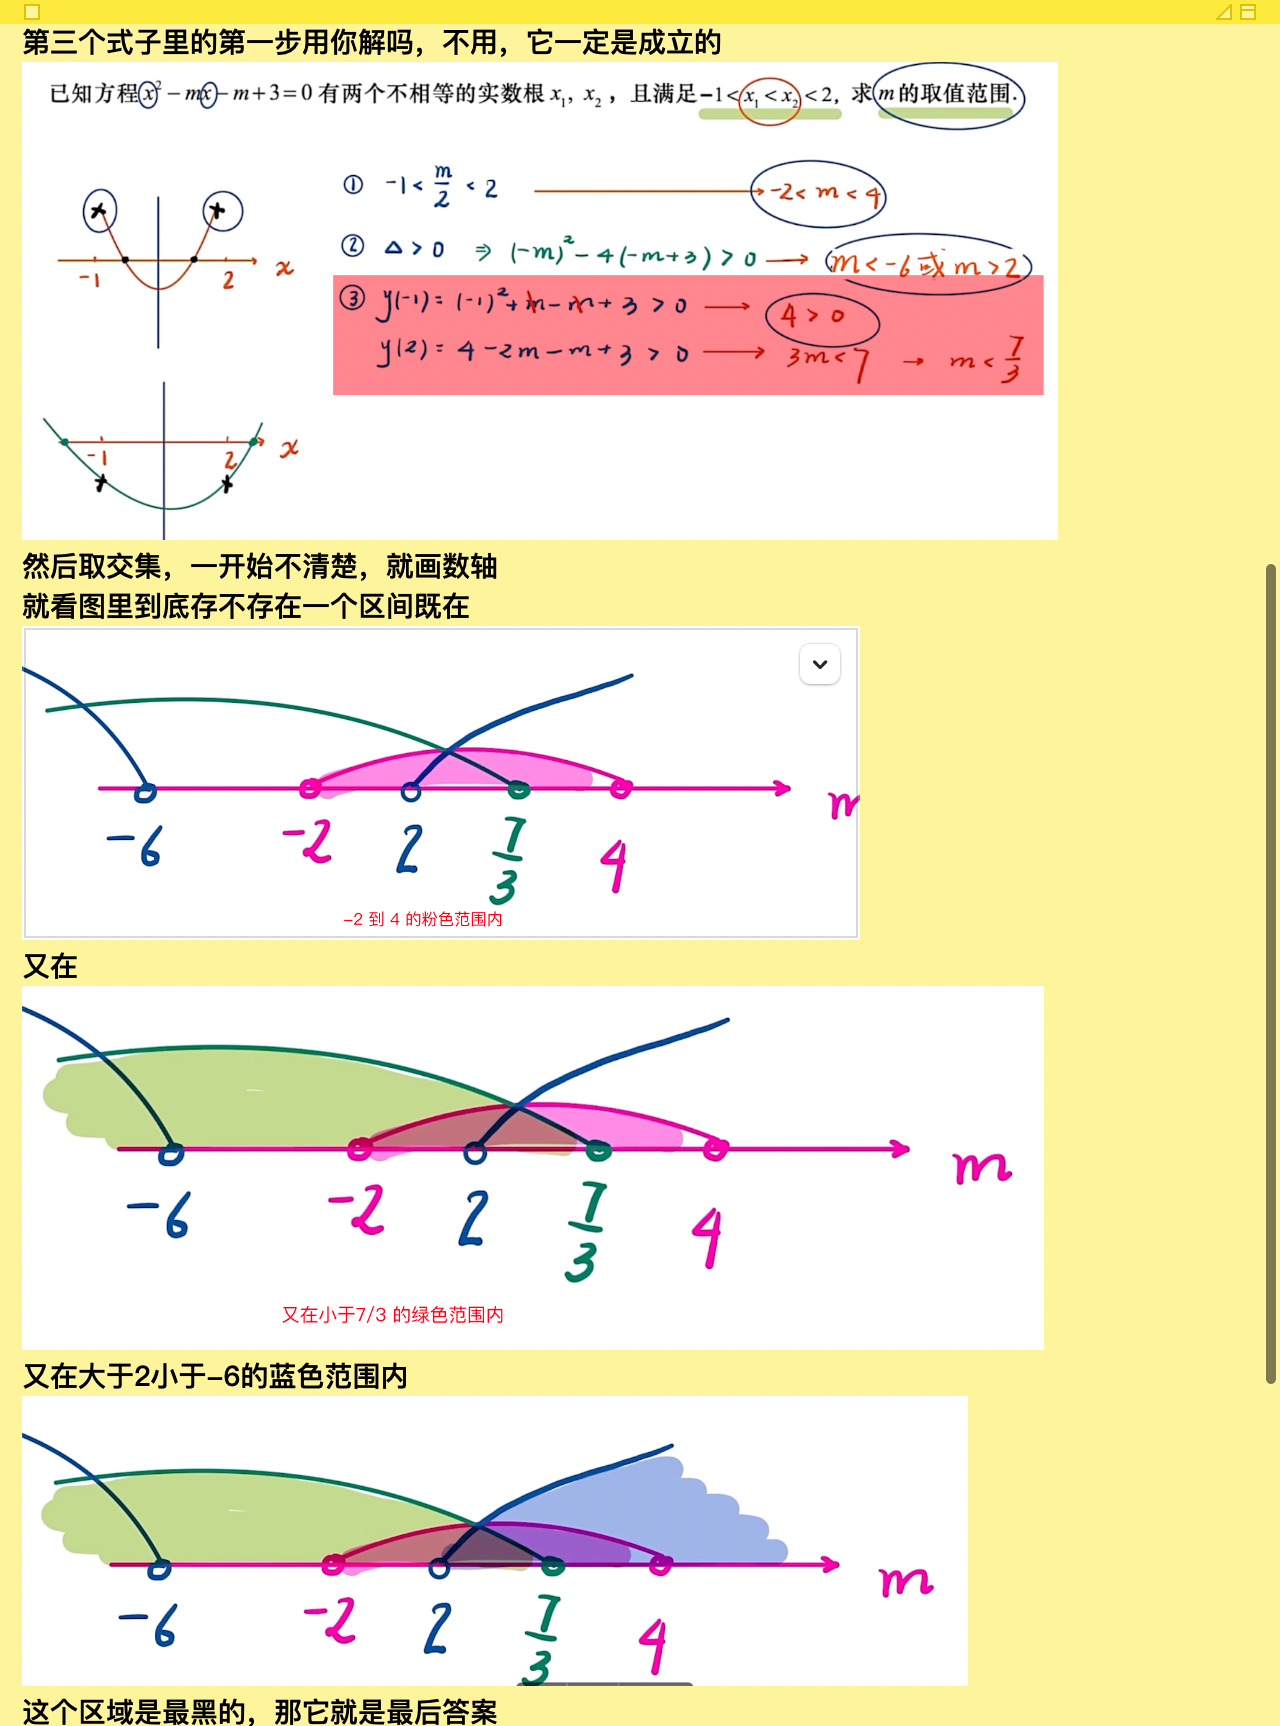 第三个式子里的第一步用你解吗，不用，它一定是成立的
已知方程x²-mx-m+3=0有两个不相等的实数根x₁, x₂，且满足-1<x₁<x₂<2, 求m的取值范围.
① -1<m/2<2 → -2<m<4
② Δ>0 ⇒ (-m)²-4(-m+3)>0 → m<-6或m>2
-1 2 x
③ y(-1)=(-1)²+m-m+3>0 → 4>0
y(2)=4-2m-m+3>0 → 3m<7 → m<7/3
-1 2 x
然后取交集，一开始不清楚，就画数轴
就看图里到底存不存在一个区间既在
m
-6 -2 2 7/3 4
-2 到 4 的粉色范围内
又在
m
-6 -2 2 7/3 4
又在小于7/3 的绿色范围内
又在大于2小于-6的蓝色范围内
m
-6 -2 2 7/3 4
这个区域是最黑的，那它就是最后答案